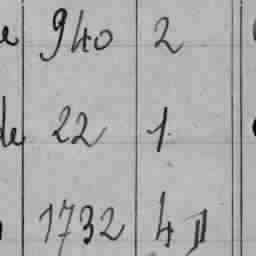 940 2
22 1
1732 4